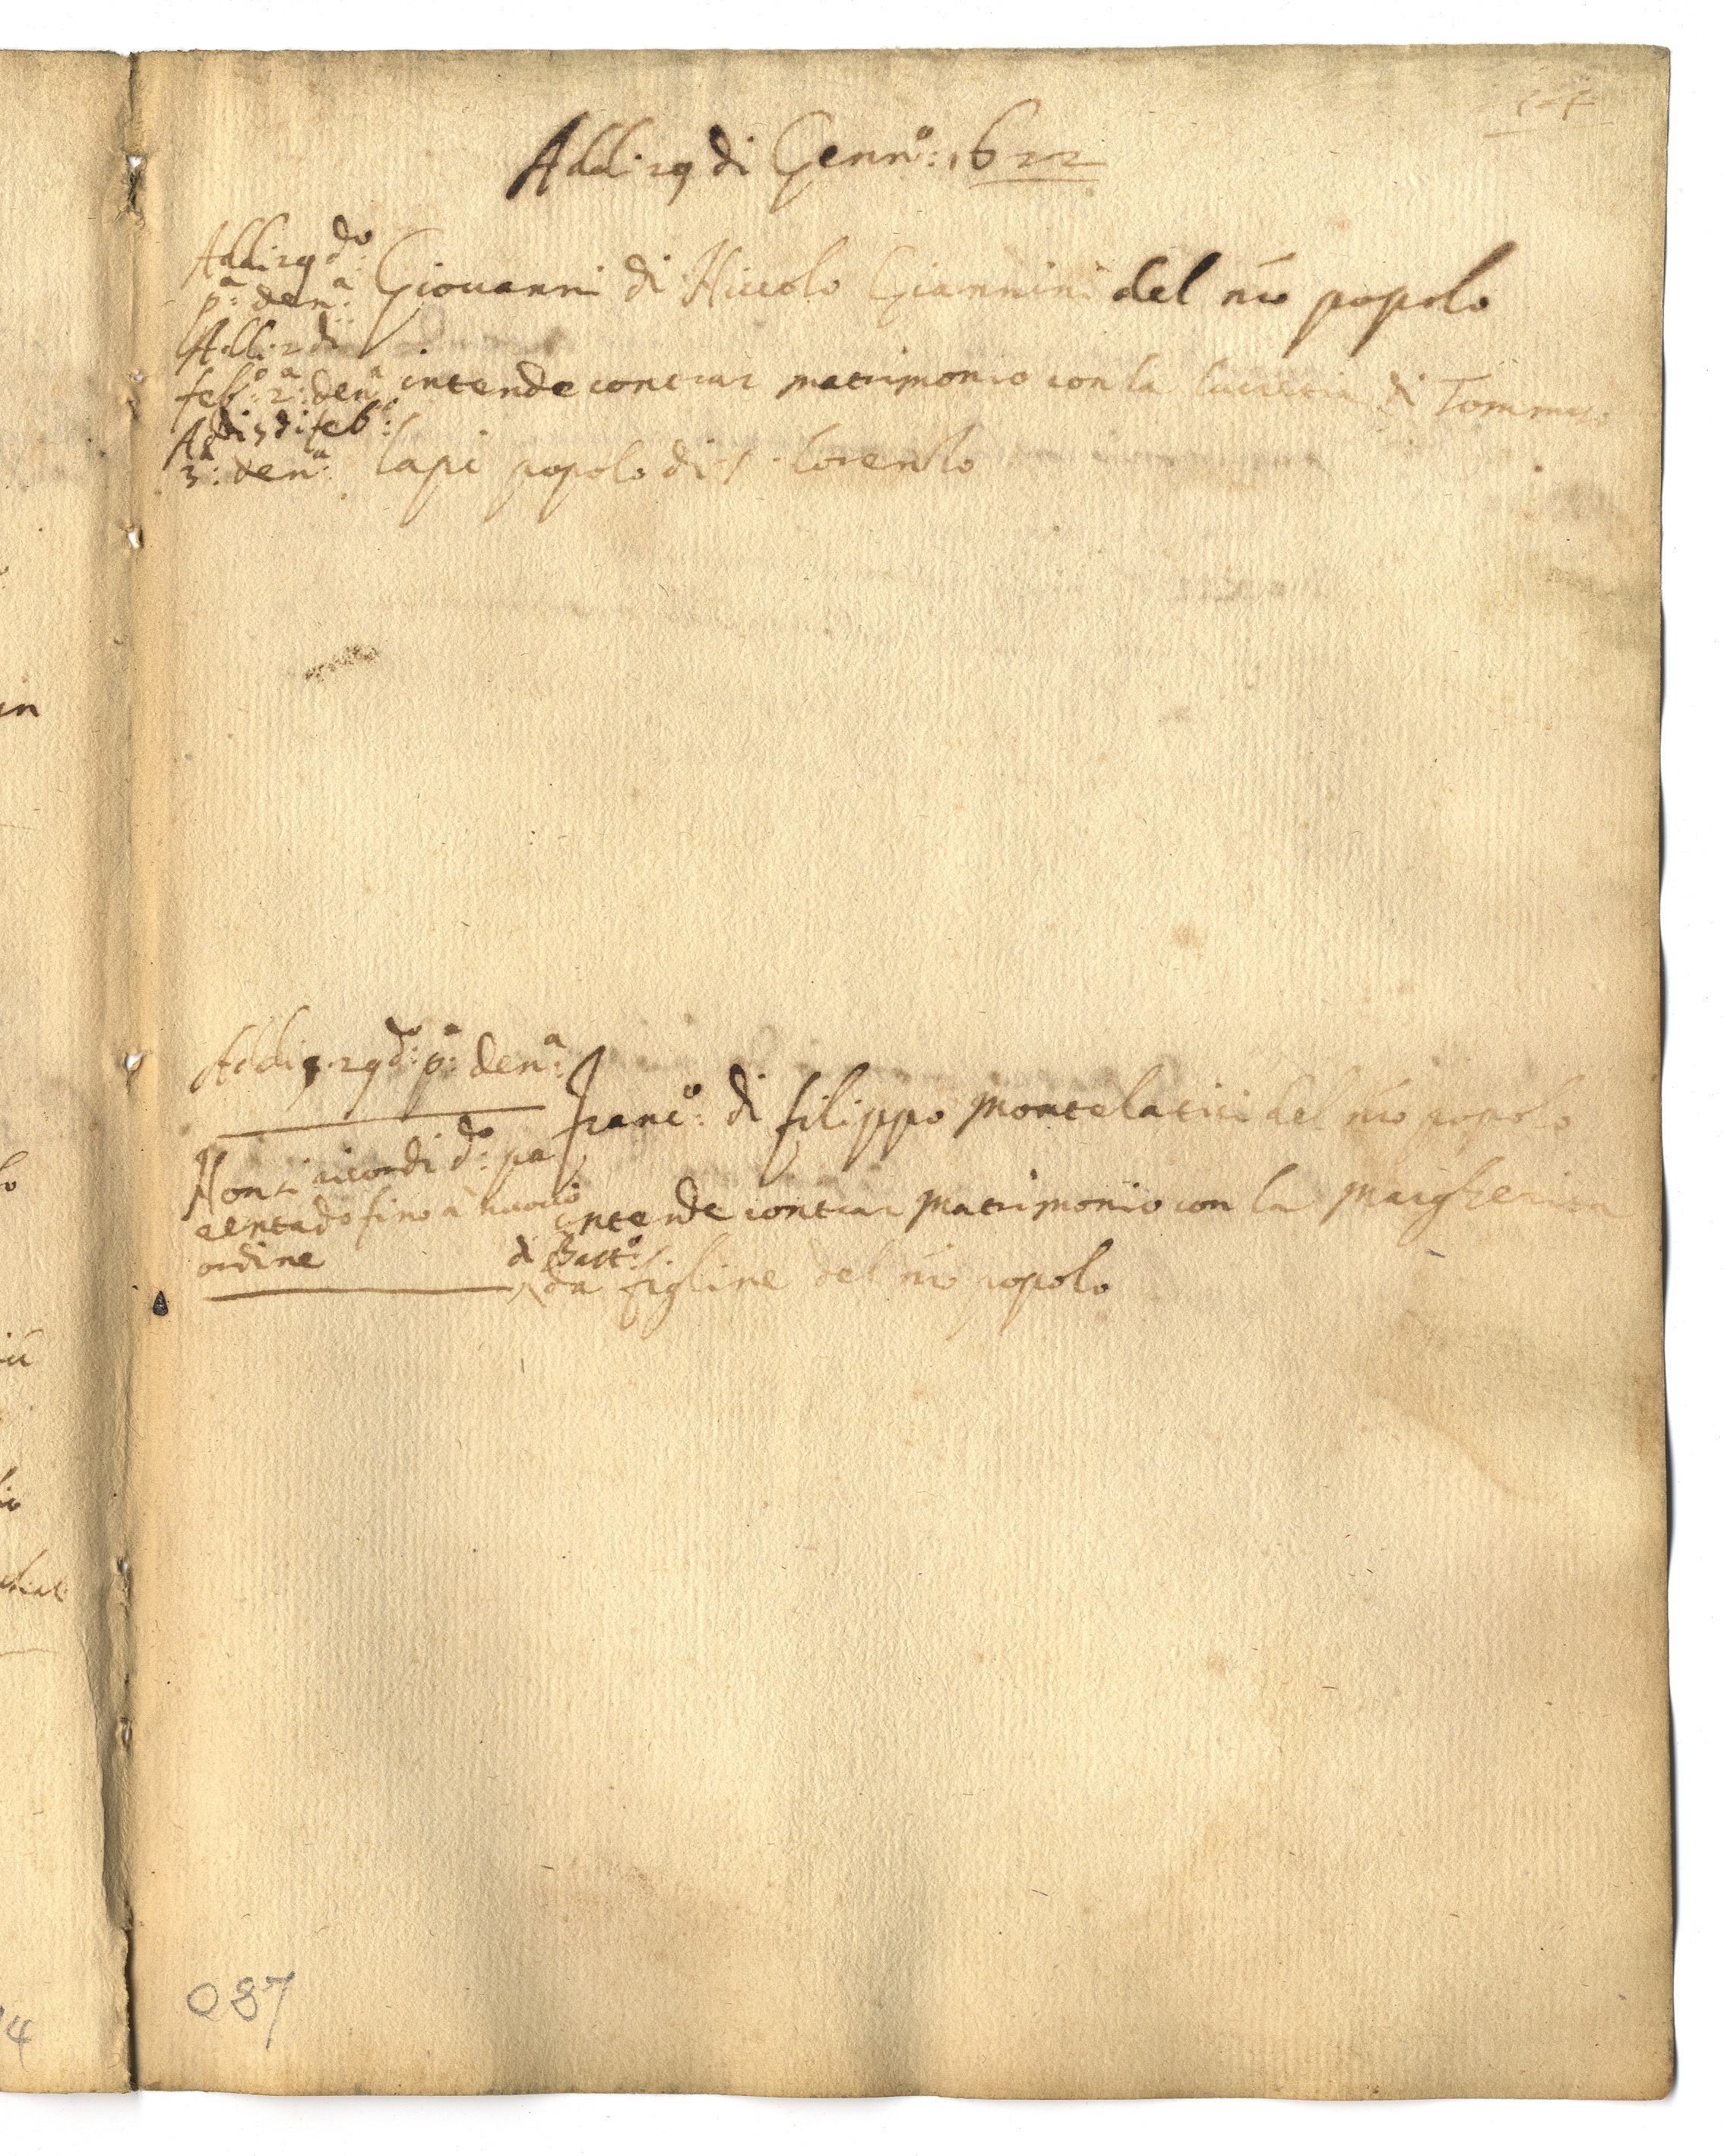 Addi 29 di Genn.º: 1622
Addi 29 d.º:
p.ª: den.ª:
Giovanni di Niccolo Giannini del nrō popolo
Addi 2 di
feb.º 2.ª: den.ª
intende contrar matrimonio con la lucretia di Tommaso
Addi 5 di feb.º:
3.ª: den.ª:
lapi popolo di S. lorenzo
Addi 29 d.º: p.ª: den.ª:
Franc.º: di filippo Montelatici del nrō popolo
Non si ricordi d.º: pa
rentado fino à nuovo
ordine
intende contrar Matrimonio con la Margherita
di Batt.º:
da figline del nrō popolo
087